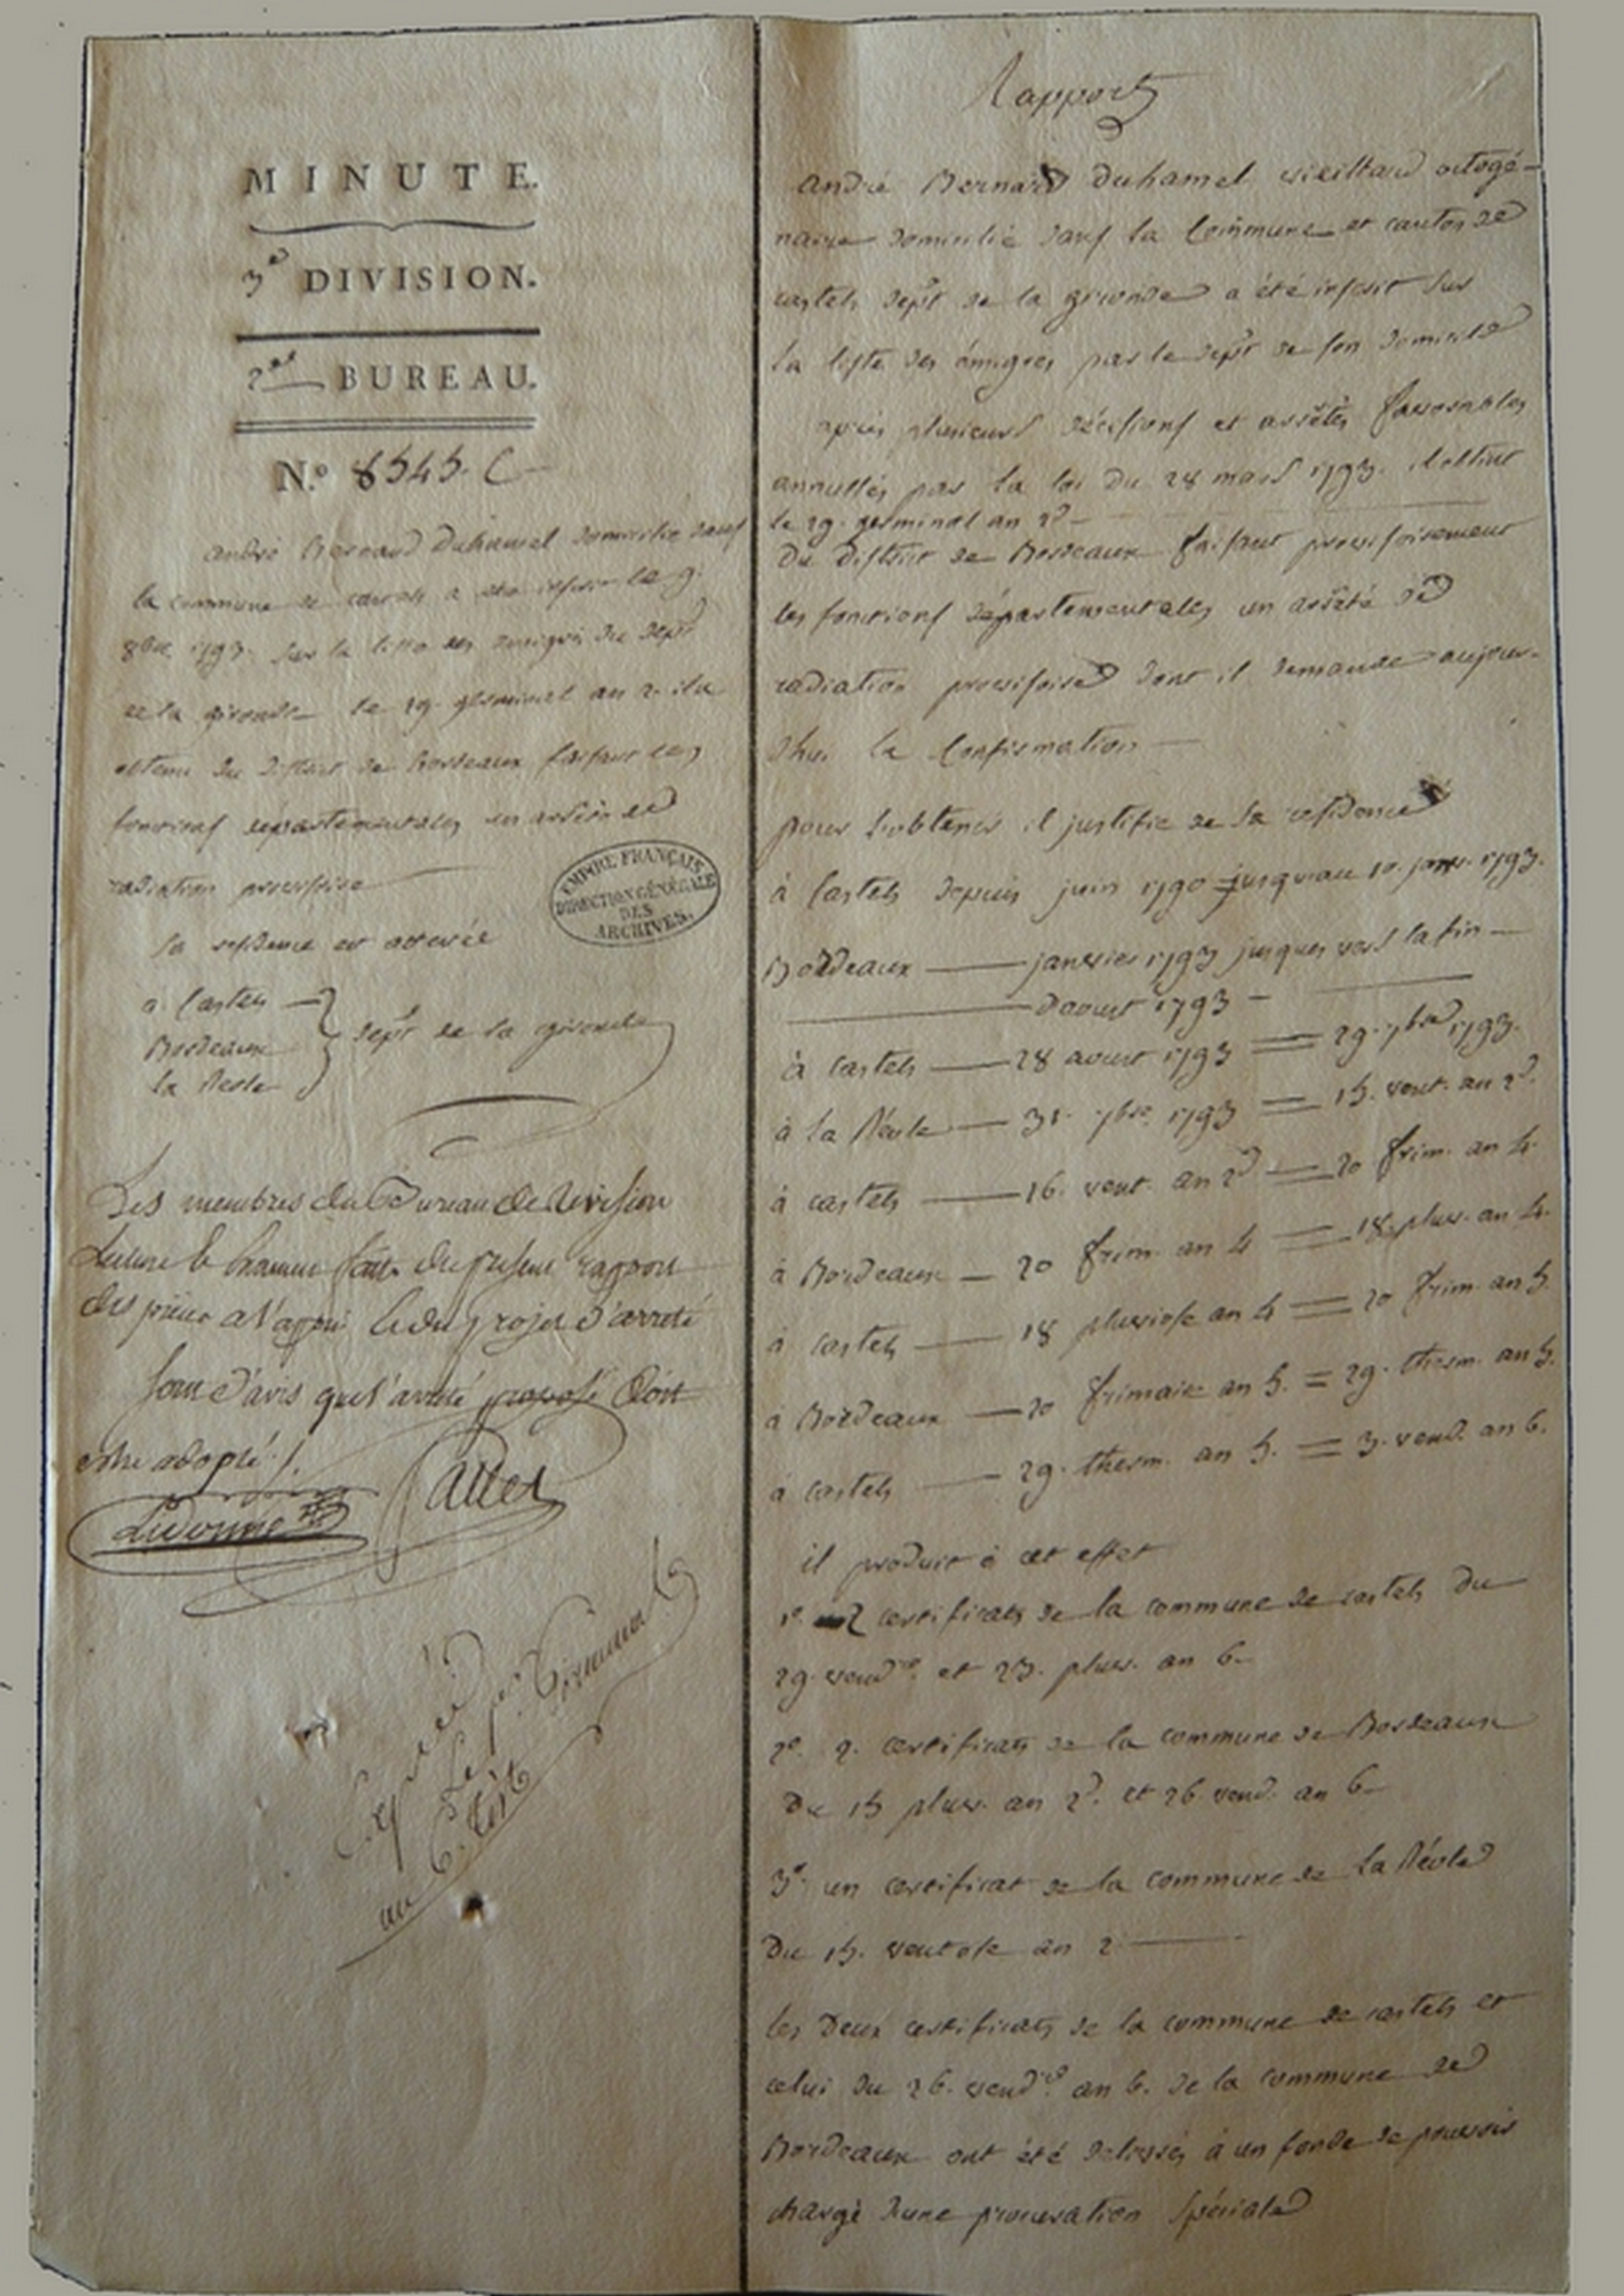 MINUTE.
3e DIVISION.
2me BUREAU.
N.º 8545. C
andré Bernard Duhamel domicilié dans
la commune de castets a été inscrit le 9.
8bre 1793 sur la liste des émigrés du dept
de la gironde le 29. germinal an 2. il a
obtenu du district de Bordeaux faisant les
fonctions départementales un arrêté de
radiation provisoire
sa residence est attestée
a Castets
Bordeaux
la Reole
dept de la gironde
EMPIRE FRANÇAIS
DIRECTION GÉNÉRALE
DES
ARCHIVES.
Les membres du Bureau de Revision
Lecture & Examen faits du present rapport
des pieces a l'appui & du projet d'arreté
sont d'avis que l'arreté proposé doit
estre adopté /.
Lidonne Pallet
Expedié
Le pr.
au C.
Rapport
andré Bernard Duhamel vieillard octogé-
naire domicilié dans la Commune et canton de
castets dept de la gironde a été inscrit sur
la liste des émigrés par le dept de son domicile
après plusieurs décisions et arrêtés favorables
annullés par la loi du 28 mars 1793. il obtint
le 29. germinal an 2d
du district de Bordeaux faisant provisoirement
les fonctions départementales un arrêté de
radiation provisoire dont il demande aujour-
dhui la Confirmation
pour l'obtenir il justifie de sa residence
à Castets depuis juin 1790 jusqu'au 10. janv. 1793.
Bordeaux — janvier 1793 jusques vers la fin —
daoust 1793 —
à castets — 28 aoust 1793 = 29. 7bre 1793.
à la Réole — 31. 7bre 1793 = 15. vent. an 2d.
à castets — 16. vent. an 2d = 20 frim. an 4.
à Bordeaux — 20 frim. an 4 = 18. pluv. an 4.
à castets — 18 pluviose an 4 = 20 frim. an 5.
à Bordeaux — 20 frimaire an 5. = 29. therm. an 5.
à castets — 29. therm. an 5. = 3. vend. an 6.
il produit à cet effet
1º. 2 certificats de la commune de castets du
29. vendre. et 23. pluv. an 6
2º. 2. certificats de la commune de Bordeaux
du 15 pluv. an 2d. et 26 vend. an 6
3º. un certificat de la commune de La Réole
du 15. ventose an 2
les deux certificats de la commune de castets et
celui du 26. vendre. an 6. de la commune de
Bordeaux ont été delivrés à un fondé de pouvoir
chargé d'une procuration spéciale